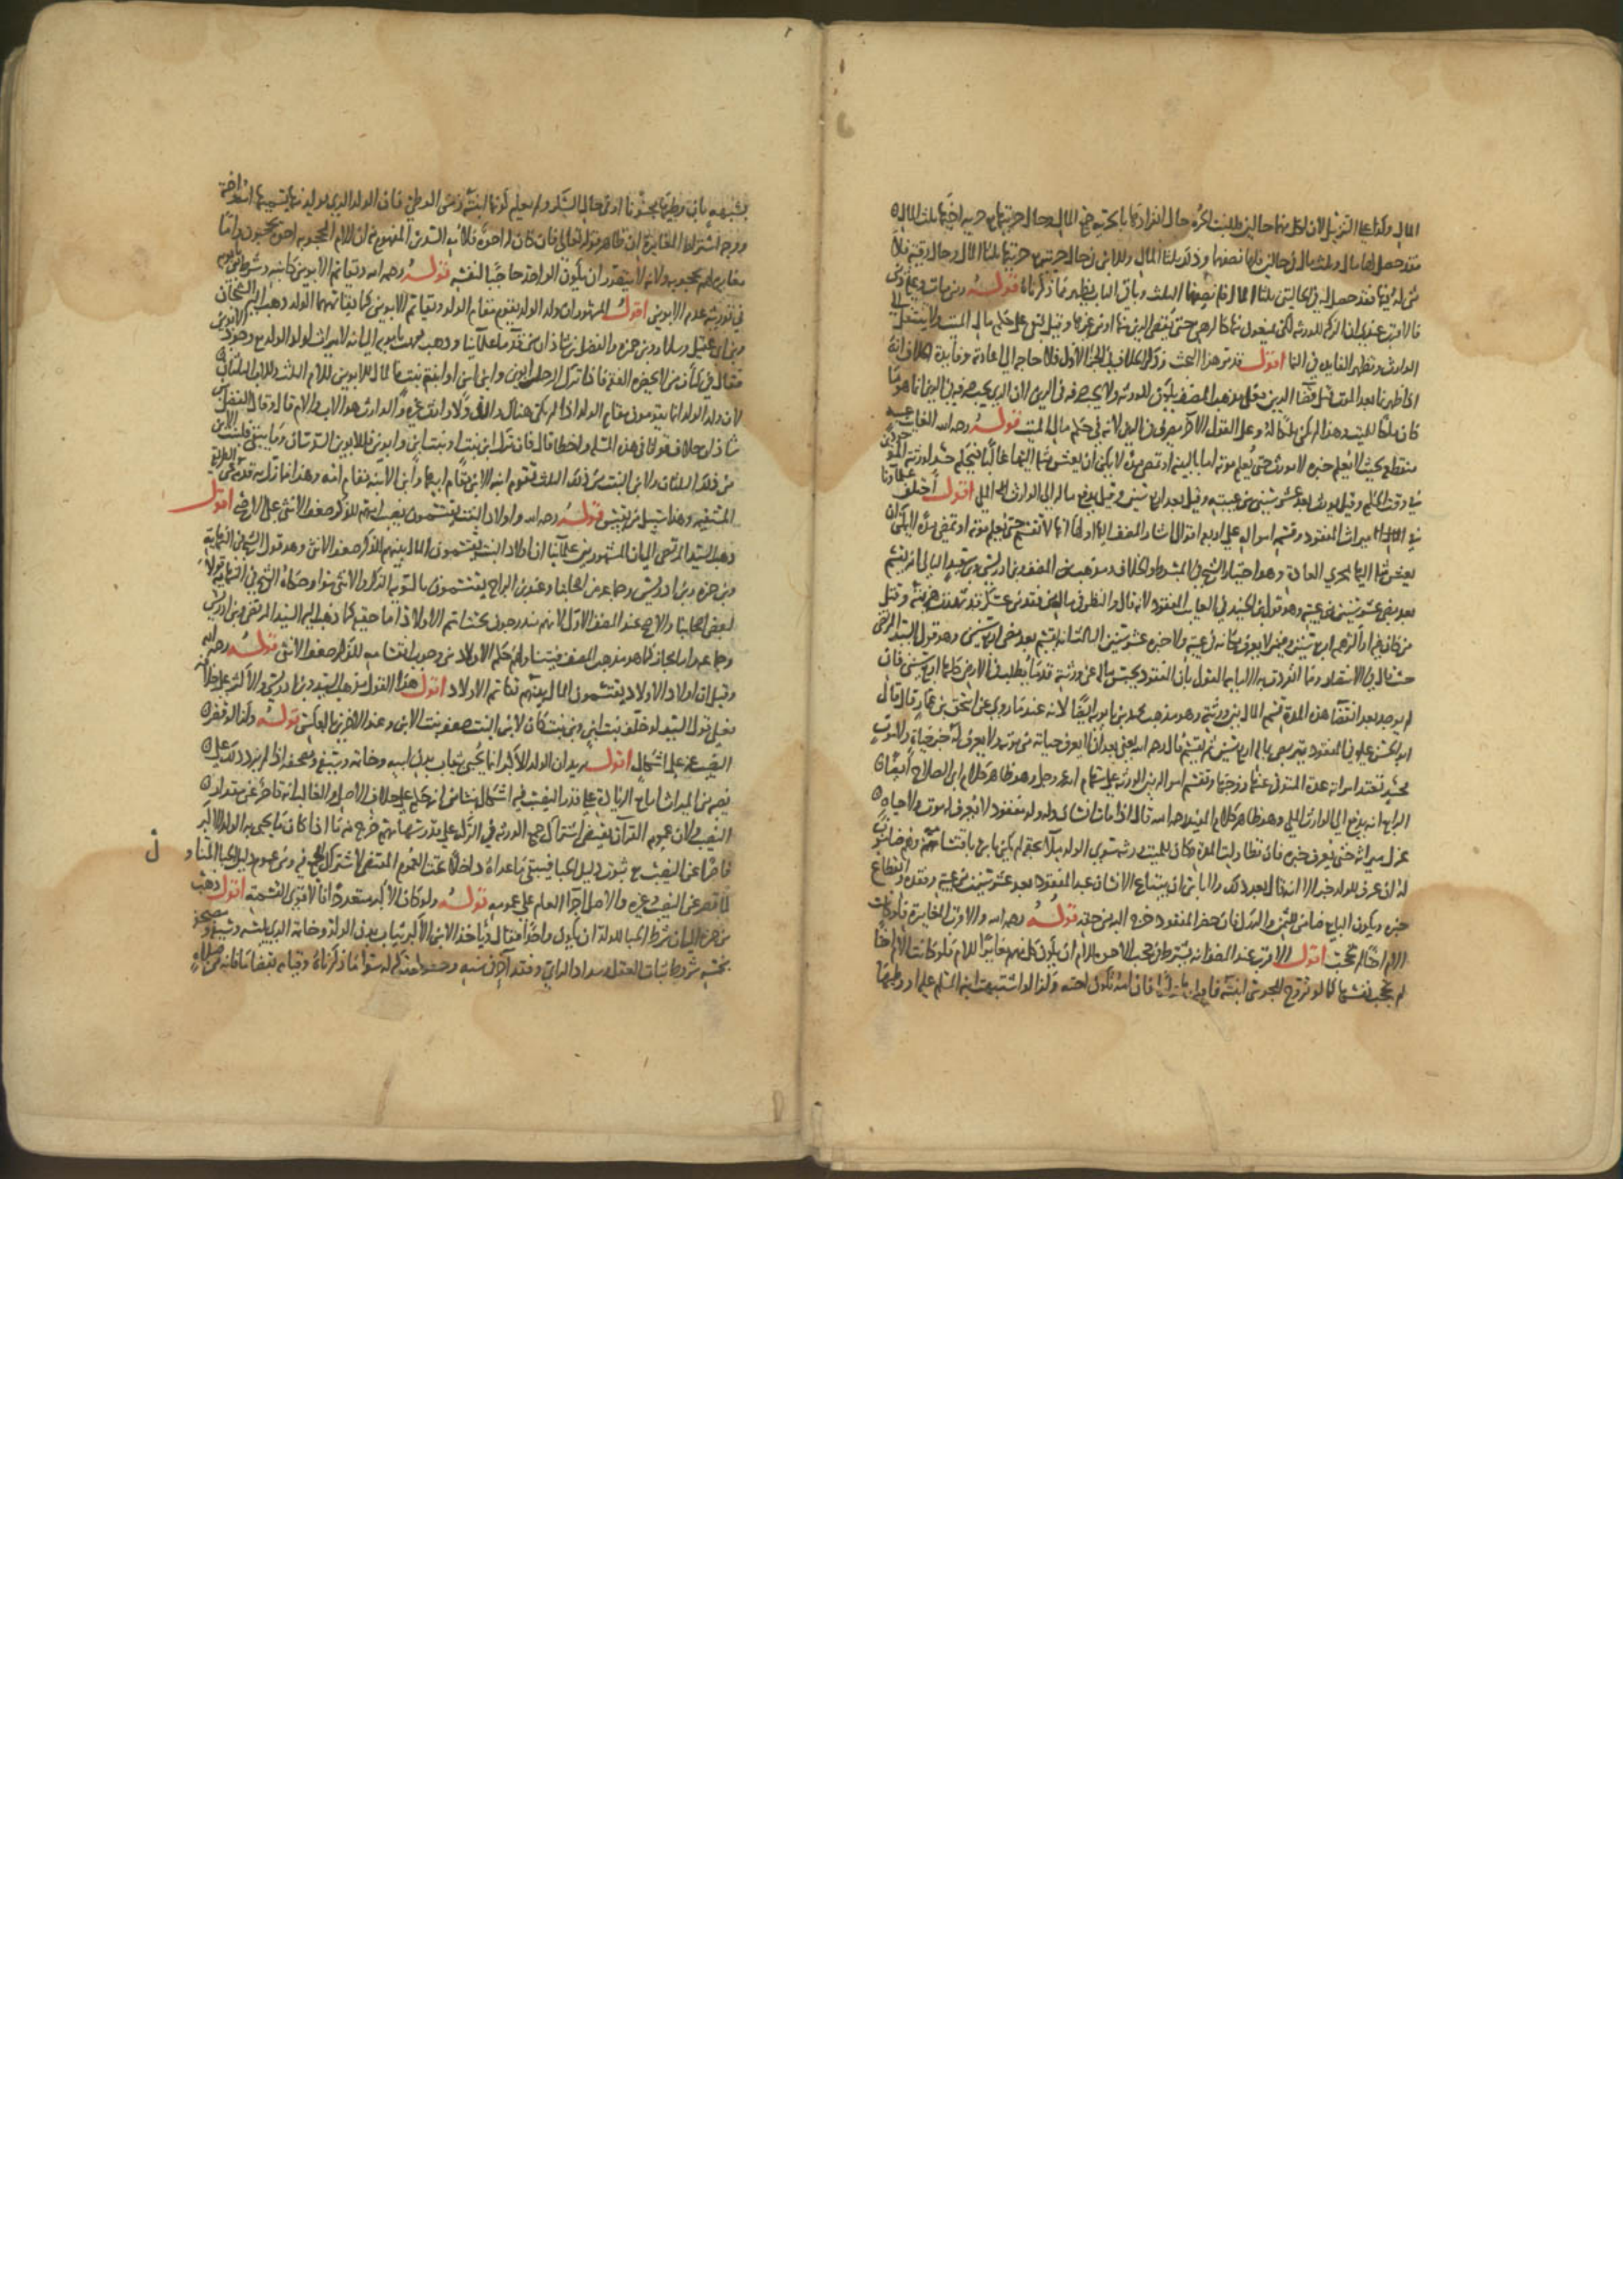 المال وكذا على التنزيل لان لكل منهما حالين فللبنت الحرة حال انفرادها بالحرية جميع المال وحال حريتهما حرية اخيها ثلث المال
فقد حصل لها مال وثلث مال في حالين فلها نصفهما وذلك ثلثا المال وللابن في حال حريتهما ثلثا المال وحال رقيته فلا
شي له فيها فقد حصل له في الحالتين ثلثا المال فله نصفها الثلث وباقي الباب يظهر مما ذكرناه قوله ومن مات وعليه دين
فالاقرب عندي ان التركة للورثة لكن يمنعون منها كالرهن حتى يقضى الدين منها او من غيرها وقيل تبقى على حكم مال الميت ولا ينتقل الى
الوارث وتظهر الفائدة في النما اقول قد مر هذا البحث وذكر الخلاف في الجزء الاول فلا حاجة الى اعادته وفايدة الخلاف انه
اذا ظهر نما بعد الموت قبل قضا الدين فعلى مذهب المصنف يكون للورثة ولا يجب صرفه في الدين لان الدين يجب صرفه فيه انما هو ما
كان ملكا للميت وهذا لم يكن ملكا له وعلى القول الاخر يصرف في الدين لانه في حكم مال الميت قوله رحمه الله الغايب غيبة
منقطعة بحيث لا يعلم خبره لا يورث حتى يعلم موته اما بالبينة او تمضي مدة لا يمكن ان يعيش مثله اليها غالبا فيحكم حينئذ لورثته الموجودين
في وقت الحكم وقيل يورث بعد عشر سنين من غيبته وقيل بعد اربع سنين وقيل يدفع ماله الى الوارث الملي اقول اختلف علماونا
في ميراث المفقود وقسمة امواله على اربعة اقوال ما اشار المصنف اليه اولها انها لا تقسم حتى يعلم موته او تمضي مدة لا يمكن ان
يعيش مثله اليها بمجرى العادة وهو اختيار الشيخ في المبسوط والخلاف ومذهب المصنف وبن ادريس
بعد مضي عشر سنين من غيبته وهو قول ابن الجنيد في الغايب المفقود لانه قال والنظر في مال من فقد من عسكر قد شهدت هزيمته وقتل
من كان فيه او اكثرهم اربع سنين ومن لا يعرف مكانه في غيبته ولا خبره عشر سنين الثالث انه يقسم بعد مضي اربع سنين وهو قول السيد المرتضى
حيث قال في الانتصار ومما انفردت به الامامية القول بان المفقود يحبس ماله عن ورثته قدر ما يطلب في الارض كلها اربع سنين فان
لم يوجد بعد انقضا هذه المدة قسم المال بين ورثته وهو مذهب محمد بن بابويه ايضا لانه عندما روى عن اسحق بن عمار قال قال
ابو الحسن عليه في المفقود يتربص بماله اربع سنين ثم يقسم قال رحمه الله يعني بعد ان لا يعرف حياته من موته ولا يعرف له خبر حياة ولا موت
فحينئذ تعتد امراته عدة المتوفى عنها زوجها وتقسم امواله بين الورثة على سهام الله عز وجل وهو ظاهر كلام ابي الصلاح ايضا
الرابع انه يدفع الى الوارث الملي وهو ظاهر كلام المفيد رحمه الله قال اذا مات انسان وله ولد مفقود لا يعرف له موت ولا حياه
عزل ميراثه حتى يعرف خبره فان تطاولت المدة وكان للميت ورثة سوى الولد ملاء بحقه لم يكن باس باقتسامه وهم ضامنون
له ان عرف للولد خبر الا انه قال بعد ذلك ولا باس ان يبتاع الانسان عقار المفقود بعد عشر سنين من غيبته وفقده وانقطاع
خبره ويكون البايع ضامن الثمن والدرك فان حضر المفقود خرج اليه من حقه قوله رحمه الله والاقرب المغايرة فلو كانت
الام اختا لم تحجب اقول الاقرب عند المصنف انه يشترط في حجب الاخوة للام ان يكون كل منهم مغايرا للام فلو كانت الام اختا
لم تحجب نفسها كما لو تزوج المجوسي ابنته فاولدها فان امه تكون اخته وكذا لو اشتبهت ابنة المسلم عليه او وطيها
بشبهة بان وطيها مجنونا او في حال السكر ولم يعلم كونها ابنته وفي الوطي فان الولد الذي يولد منهما اخته
ووجه اشتراط المغايرة ان ظاهر قوله تعالى فان كان له اخوة فلامه السدس المفهوم منه ان الام المحجوبة اخوة يحجبون وانها
مغايرة لهم محجوبة ولانه لا يتصور ان يكون الواحد حاجبا لنفسه قوله رحمه الله ويقاسم الابوين كابيه وشرط بن بابويه
في توريثه عدم الابوين اقول المشهور ان ولد الولد يقوم مقام الولد ويقاسم الابوين كما يقاسمهما الولد وذهب اليه الشيخان
وبن ابي عقيل وسلار وبن حمزه والفضل بن شاذان من قدما علمائنا وذهب محمد بن بابويه الى انه لا ميراث لولد الولد مع وجود الابوين
فقال في كتاب من لا يحضره الفقيه فاذا ترك الرجل ابوين وابن ابن او ابنة بنت فالمال للابوين للام الثلث وللاب الثلثان
لان ولد الولد انما يقومون مقام الولد اذا لم يكن هناك ولد ولا وارث غيره والوارث هو الاب والام قال وقال الفضل بن
شاذان خلاف قولنا في هذه المسئلة واخطا قال فان ترك ابن بنت وبنت ابن وابوين فللابوين السدسان وما بقي فلبنت الابن
من ذلك الثلثان ولابن البنت من ذلك الثلث تقوم ابنة الابن مقام ابيها وابن الابنة مقام امه وهذا مما زل به قدمه عن الطريق
المستقيمة وهذا سبيل من يقيس قوله رحمه الله واولاد البنت يقتسمون نصيب امهم للذكر ضعف الانثى على الاصح اقول
ذهب السيد المرتضى الى ان المشهور بين علمائنا ان اولاد البنت يقتسمون المال بينهم للذكر ضعف الانثى وهو قول الشيخ في النهاية
وبن حمزه وبن ادريس وجماعه من اصحابنا وعند بن البراج يقتسمون بالسوية الذكر والانثى سوا وحكاه الشيخ في النهاية قولا
لبعض اصحابنا والاصح عند المصنف الاول لانهم يندرجون تحت اسم الاولاد اما حقيقة كما ذهب اليه السيد المرتضى وبن ادريس
وجماعه واما مجازا كما هو مذهب المصنف فيتناولهم حكم الاولاد من وجوب اقتسامه للذكر ضعف الانثى قوله رحمه الله
وقيل ان اولاد الاولاد يقتسمون المال بينهم تقاسم الاولاد اقول هذا القول مذهب السيد وبن ادريس والاكثر على خلافه
فعلى قول السيد لو خلف بنت ابن وبن بنت كان لابن البنت ضعف بنت الابن وعند الاخرين بالعكس قوله وكذا لو قصر
النصيب عنه على اشكال اقول يريد ان الولد الاكبر انما يحبى بثياب بدن ابيه وخاتمه وسيفه ومصحفه اذا لم يزد ذلك على
نصيبه من الميراث اما مع الزيادة على قدر النصيب فيه اشكال ينشا من انه حكم على خلاف الاصل والغالب انه قاصر عن مقدار
النصيب لان عموم القران يقتضي اشتراك جميع الورثة في التركة على قدر سهامهم خرج منه ما اذا كان ما يحبى به الولد الاكبر
قاصرا عن النصيب فيبقى ما عداه داخلا تحت العموم المقتضي لاشتراك الجميع فيه ومن عموم دليل الحبا المتناول
لما قصر عن النصيب وغيره والاصل اجرا العام على عمومه قوله ولو كان الاكبر متعددا فالاقرب القسمة اقول ذهب
بن حمزه الى ان شرط الحبا للولد ان يكون واحدا فقال وياخذ الابن الاكبر ثياب بدن الوالد وخاتمه الذي يلبسه وسيفه ومصحفه
بخمسة شروط ثبات العقل وسداد الراي وفقد اخر في سنه وحصول تركة له سوا ما ذكرناه وقيامه بقضا ما فاته من صلاة